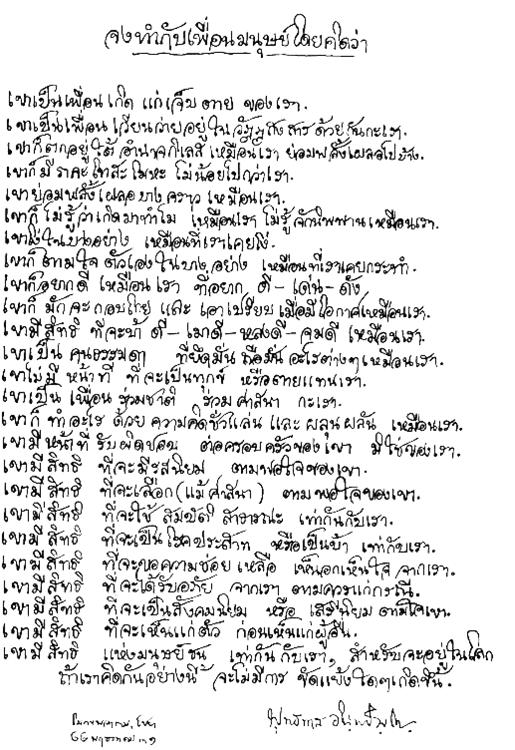 จงทำกับเพื่อนมนุษย์โดยคิดว่า
เขาเป็นเพื่อน เกิด แก่ เจ็บ ตาย ของเรา.
เขาเป็นเพื่อน เวียนว่ายอยู่ใน วัฏฏสงสาร ด้วยกันกะเรา.
เขาก็ตกอยู่ใต้ อำนาจกิเลส เหมือนเรา ย่อมพลั้งเผลอไปบ้าง.
เขาก็มี ราคะ โทสะ โมหะ ไม่น้อยไปกว่าเรา.
เขาย่อมพลั้งเผลอ บางคราว เหมือนเรา.
เขาก็ ไม่รู้ว่าเกิดมาทำไม เหมือนเรา ไม่รู้จักนิพพาน เหมือนเรา.
เขาโง่ในบางอย่าง เหมือนที่เราเคยโง่.
เขาก็ตามใจ ตัวเองในบางอย่าง เหมือนที่เราเคยกระทำ.
เขาก็อยากดี เหมือนเรา ที่อยาก ดี - เด่น - ดัง
เขาก็ มักจะกอบโกย และ เอาเปรียบ เมื่อมีโอกาสเหมือนเรา.
เขามีสิทธิ ที่จะบ้า ดี - เมาดี - หลงดี - จมดี เหมือนเรา.
เขาเป็น คนธรรมดา ที่ยึดมั่น ถือมั่น อะไรต่างๆเหมือนเรา.
เขาไม่มี หน้าที่ ที่จะเป็นทุกข์ หรือตายแทนเรา.
เขาเป็น เพื่อน ร่วมชาติ ร่วมศาสนา กะเรา.
เขาก็ ทำอะไร ด้วย ความคิดชั่วแล่น และ ผลุนผลัน เหมือนเรา.
เขามีหน้าที่ รับผิดชอบ ต่อครอบครัวของเขา มิใช่ของเรา.
เขามีสิทธิ ที่จะมีรสนิยม ตามพอใจของเขา.
เขามีสิทธิ ที่จะเลือก (แม้ศาสนา) ตามพอใจของเขา.
เขามีสิทธิ ที่จะใช้ สมบัติ สาธารณะ เท่ากันกับเรา.
เขามีสิทธิ ที่จะเป็น โรคประสาท หรือเป็นบ้า เท่ากับเรา.
เขามีสิทธิ ที่จะขอความช่วยเหลือ เห็นอกเห็นใจ จากเรา.
เขามีสิทธิ ที่จะได้รับอภัย จากเรา ตามควรแก่กรณี.
เขามีสิทธิ ที่จะเป็นสังคมนิยม หรือ เสรีนิยม ตามใจเขา.
เขามีสิทธิ ที่จะเห็นแก่ตัว ก่อนเห็นแก่ผู้อื่น.
เขามีสิทธิ แห่งมนุษยชน เท่ากันกับเรา, สำหรับจะอยู่ในโลก
ถ้าเราคิดกันอย่างนี้ จะไม่มีการ ขัดแย้งใดๆเกิดขึ้น.
พุทธทาส อินทปัญโญ.
โมกขพลาราม, ไชยา